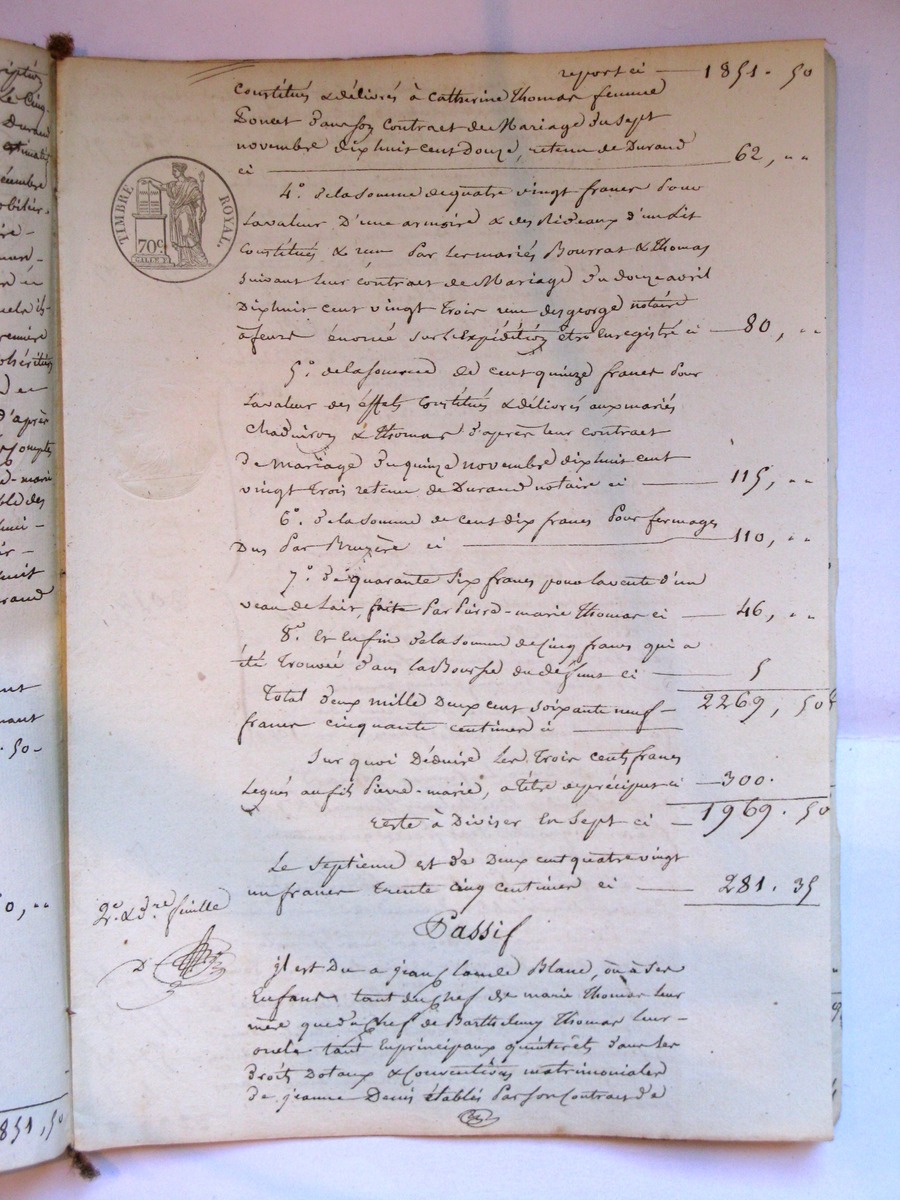 report ci — 1851. 50
Constitués & délivrés à Catherine Thomas femme
Poncet dans son Contract de Mariage du Sept
novembre dix huit cent Douze, retenu de Durand
ci — 62, ""
4°. de la somme de quatre vingt francs pour
la valeur d'une armoire & des Rideaux d'un lit
Constitués & reçu par les mariés Bourrat & Thomas
suivant leur contract de Mariage du douze avril
Dix huit cent vingt trois reçu des george notaire
à feurs énoncé sur l'Expédition être enregistré ci — 80, ""
5°. de la somme de cent quinze francs pour
la valeur des effets Constitués & délivrés aux mariés
& Thomas d'après leur contract
de Mariage du quinze novembre dix huit cent
vingt trois retenu de Durand notaire ci — 115, ""
6°. de la somme de cent dix francs pour fermages
Dus par Bruyère ci — 110, ""
7°. de quarante six francs pour la vente d'un
veau de lait, faite par Pierre-marie Thomas ci — 46, ""
8°. et enfin de la somme de Cinq francs qui a
été trouvée dans la Bourse du défunt ci — 5
Total deux mille Deux cent soixante neuf 2269, 50
francs cinquante centimes ci —
Sur quoi Déduire les trois cents francs
Legués au fils Pierre-marie, à titre de préciput ci — 300.
reste à Diviser en Sept ci — 1969. 50
Le Septième est de Deux cent quatre vingt
un francs trente cinq centimes ci — 281. 35
2e. & 3re feuille
D
Passif
jl est Du a jean Claude Blanc, ou à ses
Enfants tant du chef de marie Thomas leur
mère que du chef de Barthelemy Thomas leur
oncle tant en principaux qu'intérêts dans les
droits Dotaux & Conventions matrimoniales
de jeanne Denis établis par son Contract de
TIMBRE ROYAL.
70c
851, 50